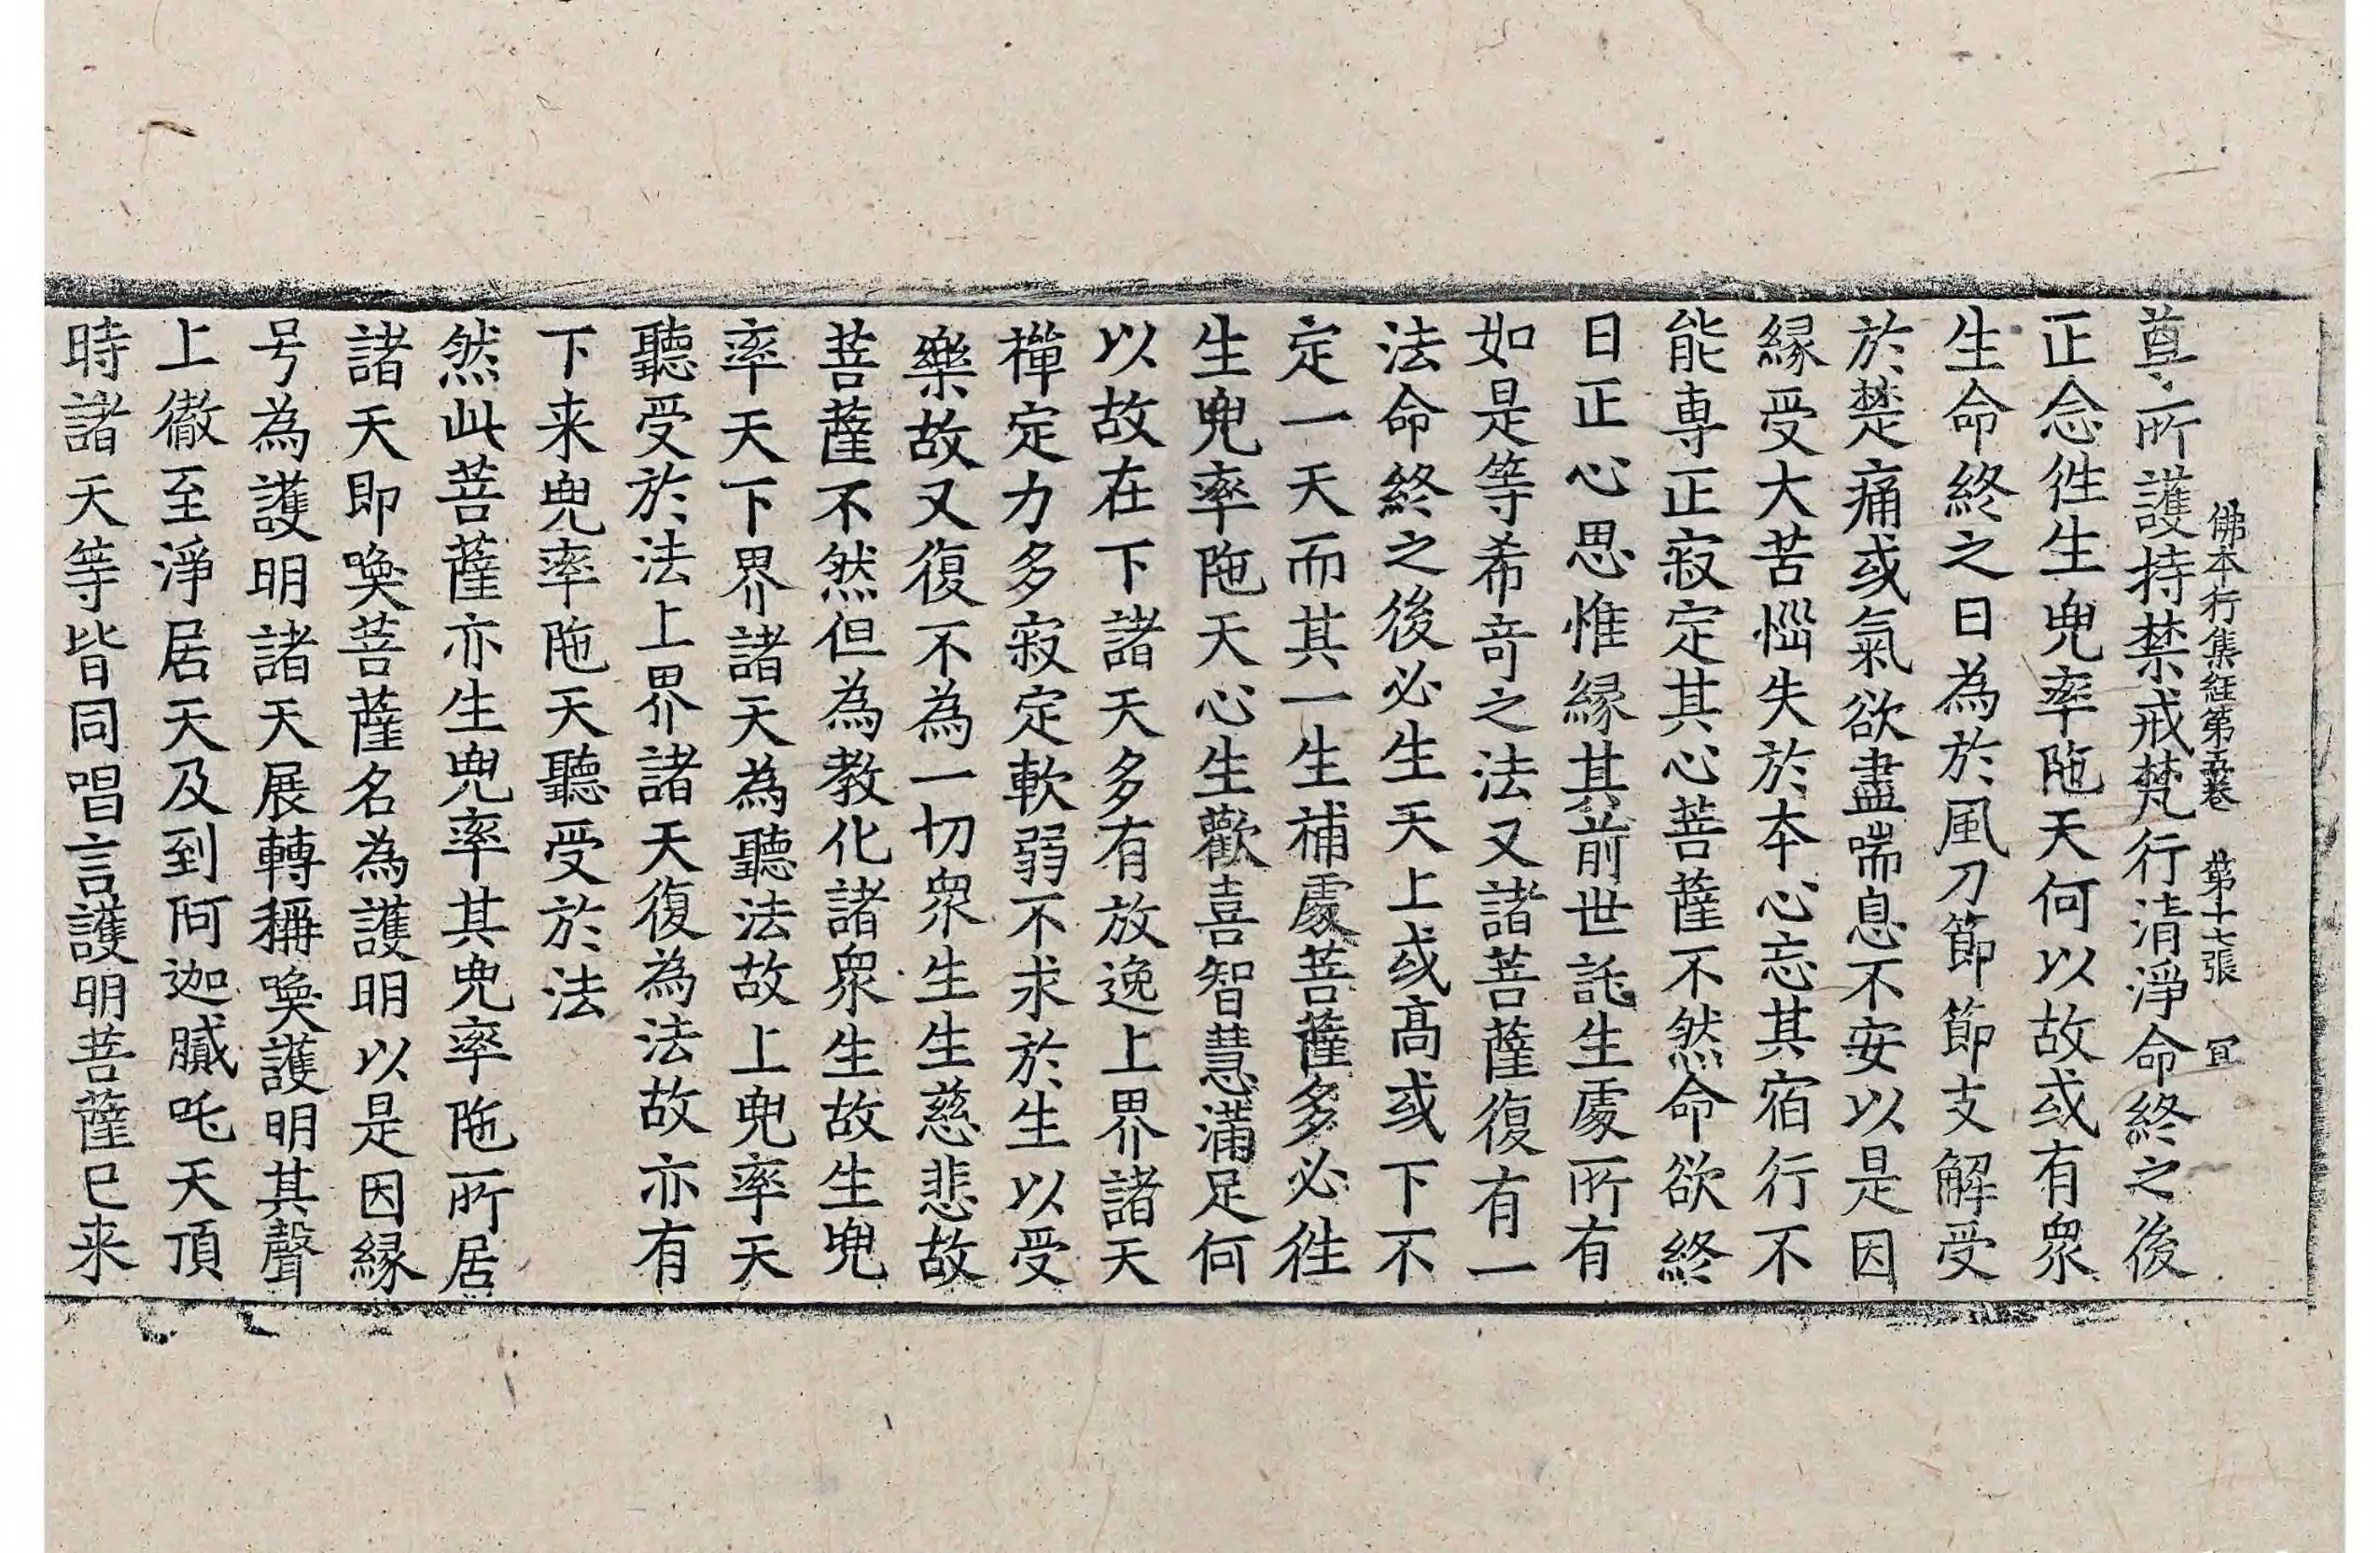 佛本行集經第五卷 第十七張 冝
尊所護持禁戒梵行清淨命終之後
正念徃生兜率陁天何以故或有衆
生命終之日為於風刀節節支解受
於楚痛或氣欲盡喘息不安以是因
縁受大苦惱失於本心忘其宿行不
能專正寂定其心菩薩不然命欲終
日正心思惟縁其前世託生處所有
如是等希竒之法又諸菩薩復有一
法命終之後必生天上或髙或下不
定一天而其一生補處菩薩多必徃
生兜率陁天心生歡喜智慧滿足何
以故在下諸天多有放逸上界諸天
禪定力多寂定軟弱不求於生以受
樂故又復不為一切衆生生慈悲故
菩薩不然但為教化諸衆生故生兜
率天下界諸天為聽法故上兜率天
聽受於法上界諸天復為法故亦有
下来兜率陁天聽受於法
然此菩薩亦生兜率其兜率陁所居
諸天即喚菩薩名為護明以是因縁
号為護明諸天展轉稱喚護明其聲
上徹至淨居天及到阿迦膩吒天頂
時諸天等皆同唱言護明菩薩已来